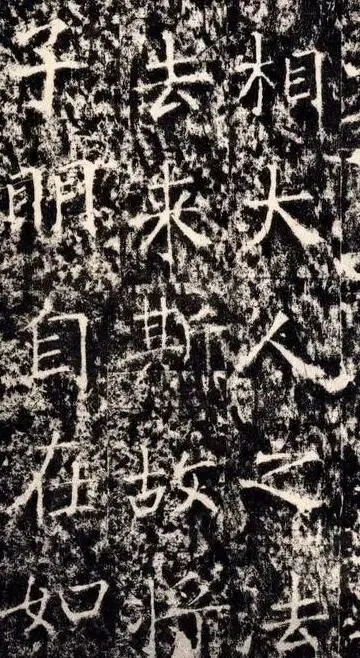 相大人之去
去来斯故將
子門自在如